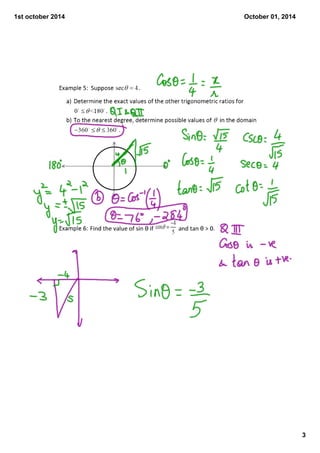 1st october 2014
October 01, 2014
Example 5: Suppose secθ = 4.
Cosθ = 1/4 = x/r
a) Determine the exact values of the other trigonometric ratios for
0 ≤ θ < 180°. Q I & Q II
b) To the nearest degree, determine possible values of θ in the domain
-360 ≤ θ ≤ 360°.
Sinθ = √15/4 Cscθ = 4/√15
Cosθ = 1/4 Secθ = 4
tanθ = √15 Cotθ = 1/√15
180° 0°
4 √15
θ
1
y² = 4² - 1²
y = ±√15
y = √15
b θ = Cos⁻¹(1/4)
θ = 76°, -284°
Example 6: Find the value of sin θ if cosθ = -4/5 and tan θ > 0.
Q III
Cosθ is -ve
& tan θ is +ve.
-4
-3 5
Sinθ = -3/5
3